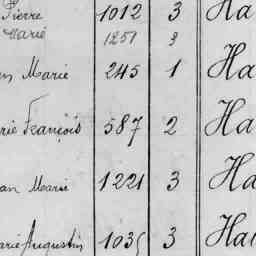 Pierre 1012 3 Ha
Marie 1251 3
Marie 245 1 Ha
François 587 2 Ha
Marie 1221 3 Ha
Augustin 1035 3 Ha